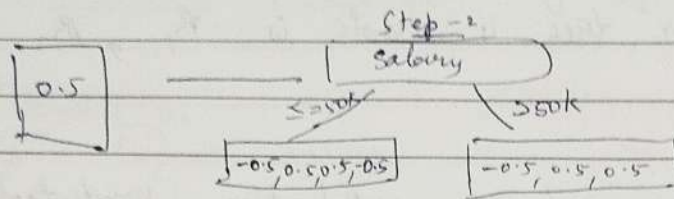 Step-2
0.5
Salary
<=50k
>50k
-0.5, 0.5, 0.5, -0.5
-0.5, 0.5, 0.5